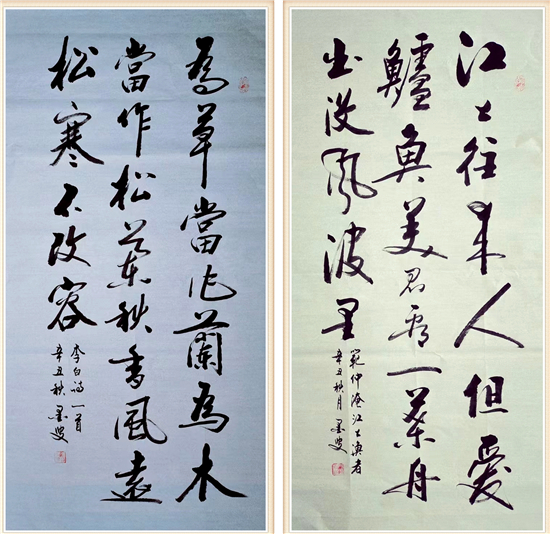 為草當作蘭為木
當作松蘭秋香風遠
松寒不改容
李白詩一首
辛丑秋 墨叟
江上往来人但愛
鱸魚美君看一葉舟
出没風波里
範仲淹江上漁者
辛丑秋月 墨叟